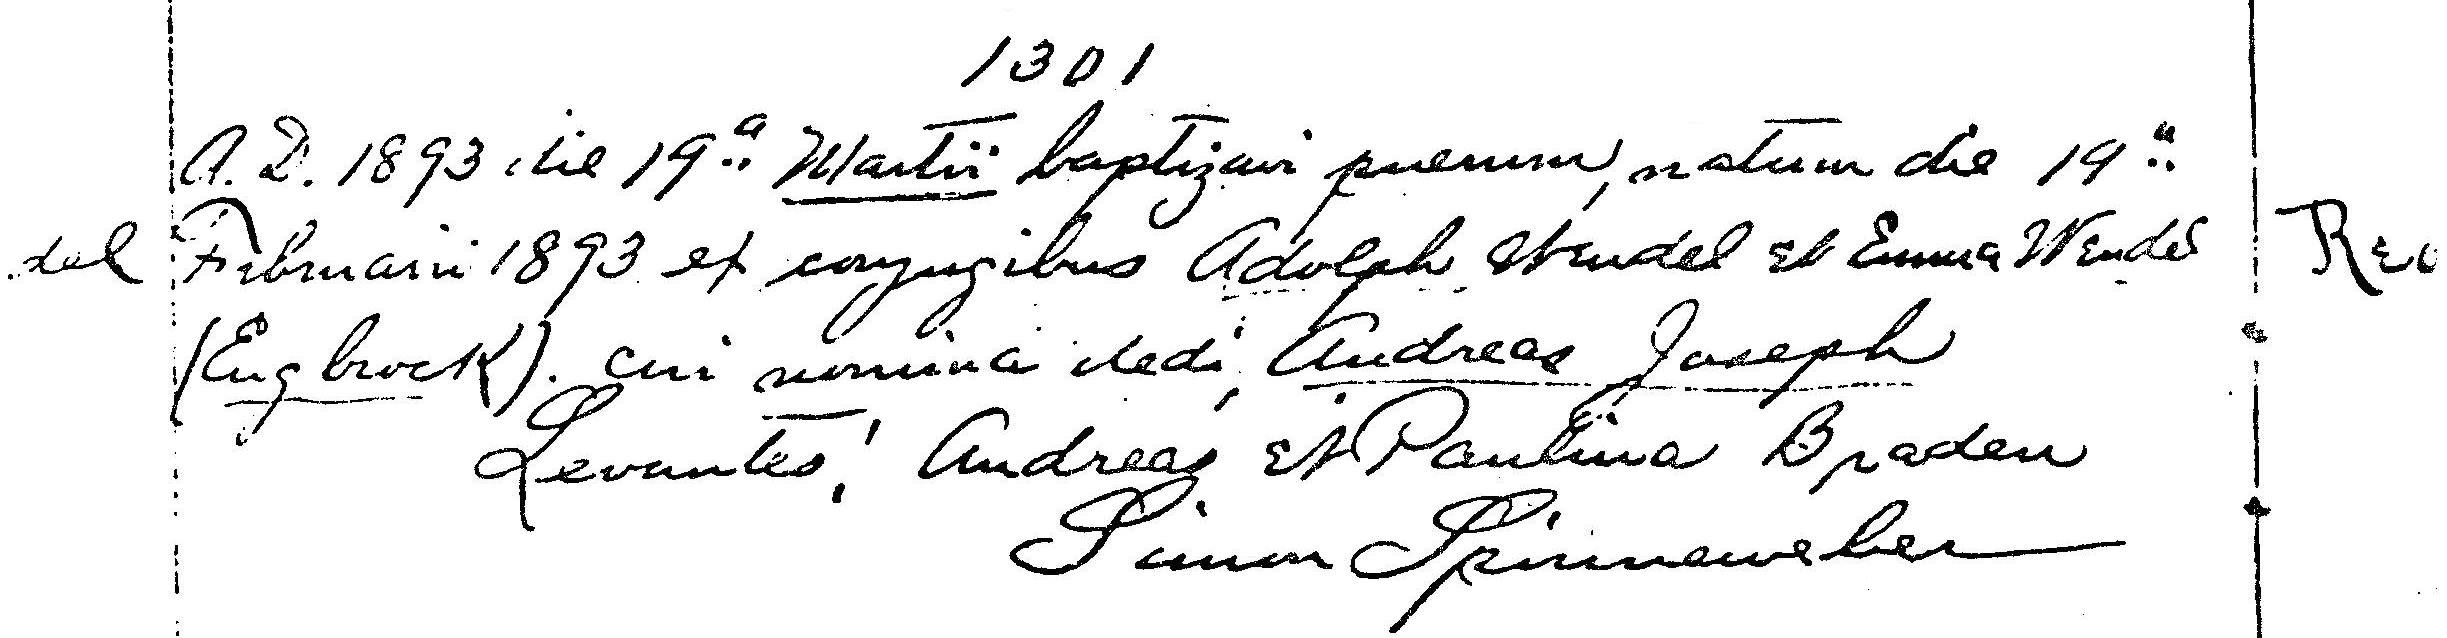 1301
A. D. 1893 die 19ª Martii baptizavi puerum, natum die 19ª
del Februarii 1893 ex conjugibus Adolph Wendel et Emma Wendel
(Engbrock). cui nomina dedi, Andreas Joseph
Levantes: Andreas et Paulina Braden
Simon Spinneweber